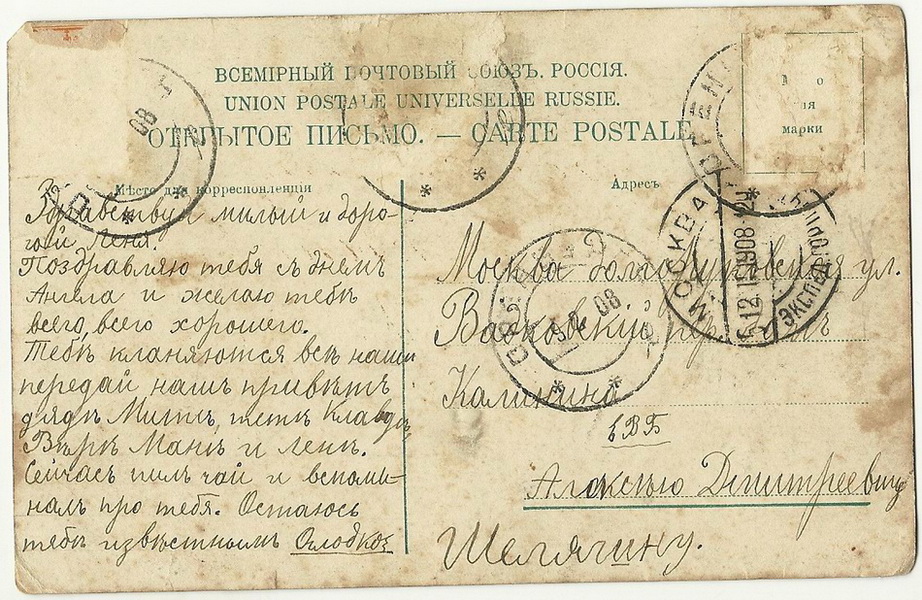 ВСЕМІРНЫЙ ПОЧТОВЫЙ СОЮЗЪ. РОССІЯ.
UNION POSTALE UNIVERSELLE RUSSIE.
ОТКРЫТОЕ ПИСЬМО. — CARTE POSTALE
марки
Мѣсто для корреспонденціи
Адресъ
Здравствуй милый и доро-
гой Леня.
Поздравляю тебя съ днемъ
Ангела и желаю тебѣ
всего, всего хорошего.
Тебѣ кланяются всѣ наши
передай нашъ привѣтъ
дядѣ Митѣ, тетѣ Клавдѣ,
Вѣрѣ Манѣ и Ленѣ.
Сейчасъ пилъ чай и вспоми-
налъ про тебя. Остаюсь
тебѣ извѣстнымъ
Москва Долгоруковская ул.
Калинина
Алексѣю Дмитреевичу
Шелягину.
МОСКВА
ЭКСПЕД
08
08